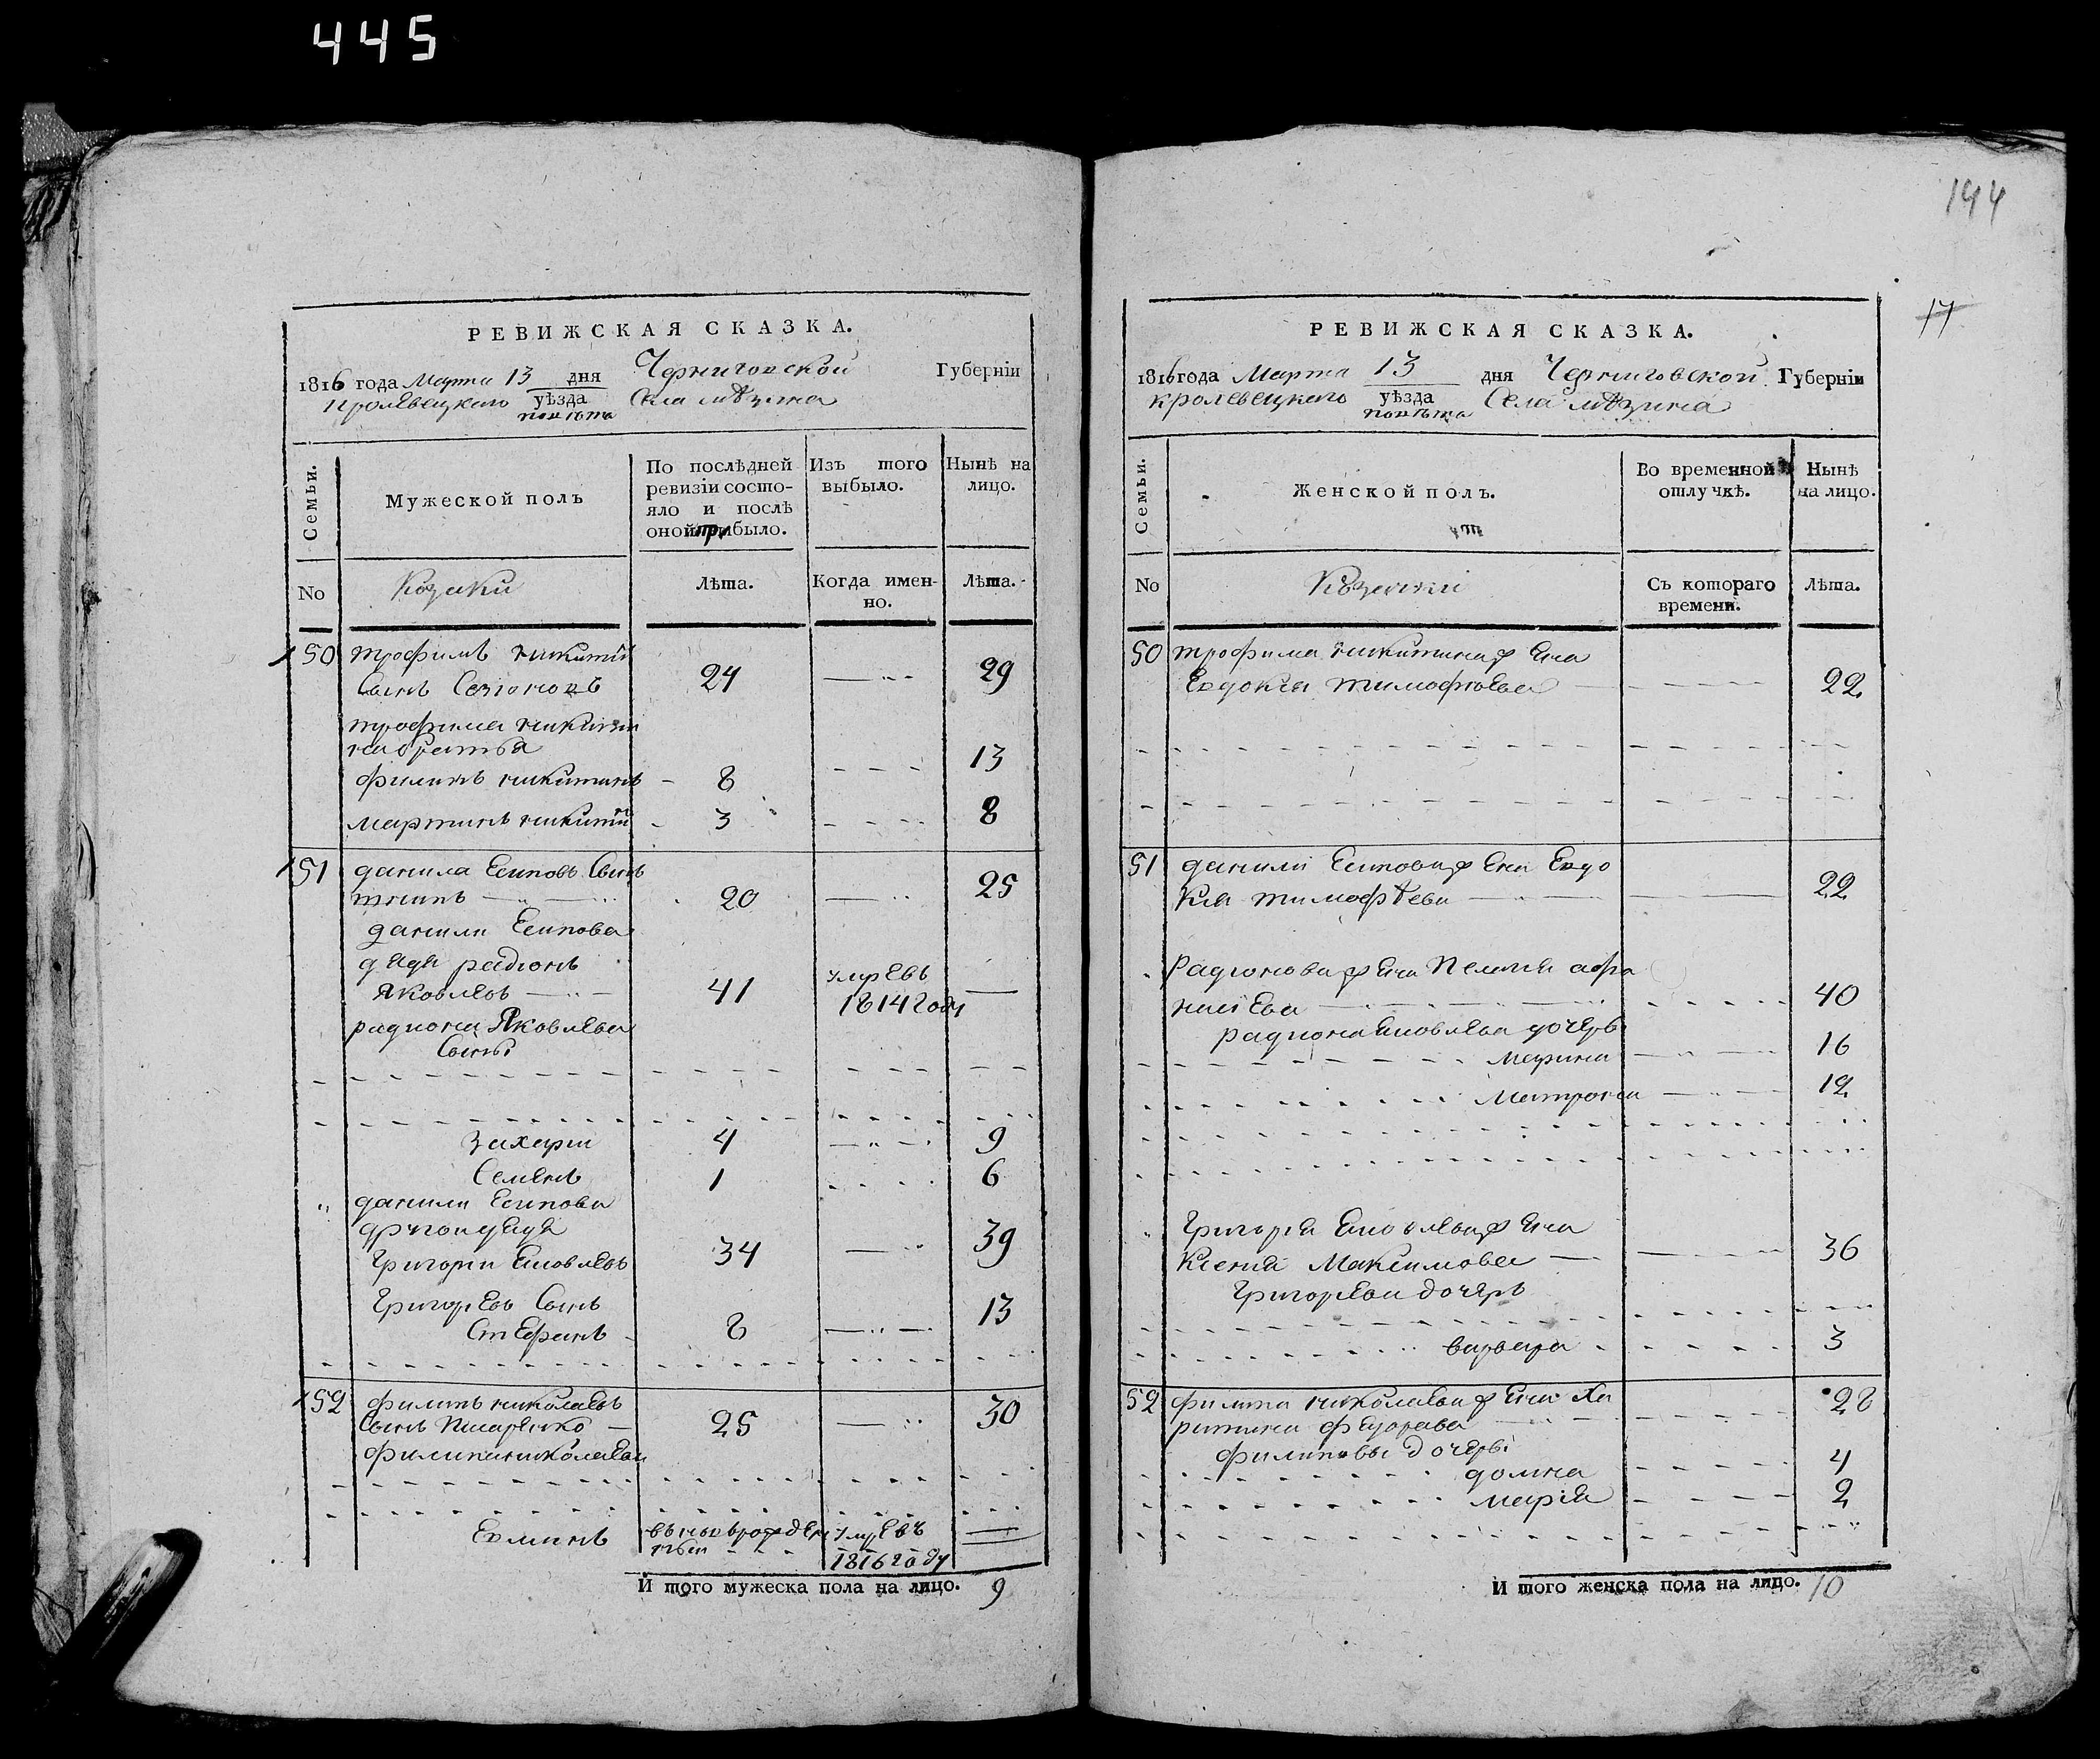 445
194
17
РЕВИЖСКАЯ СКАЗКА.
1816 года Марта 13 дня Черниговской Губернїи
Кролевецкаго уѣзда Села мѣзина
повѣта
Семьи.
Мужеской полъ
По послѣдней ревизїи состо-
яло и послѣ
оной прибыло.
Изъ того
выбыло.
Нынѣ на
лицо.
No
Козаки
Лѣта.
Когда имен-
но.
Лѣта.
150 трофимъ никитїн
Сынъ 24 29
трофима никити
на братья
филипъ никитинъ 8 13
мартинъ никитїн 3 8
151 данила Есиповъ Сынъ
20 25
данили Есипова
дядя радїонъ
Яковлевъ 41 умревъ 1814 году
радиона Яковлева
Сыны
захарїи 4 9
Семенъ 1 6
данили Есипова
другои дядя
Григорїи Яковлевъ 34 39
Григорїевъ Сынъ
Стефанъ 8 13
152 филипъ николаевъ
Сынъ Писаренко 25 30
филипа николаева
умревъ
1816 году
И того мужеска пола на лицо. 9
РЕВИЖСКАЯ СКАЗКА.
1816 года Марта 13 дня Черниговской Губернїи
кролевецкаго уѣзда Села мѣзина
повѣта
Семьи.
Женской полъ.
Во временной
отлучкѣ.
Нынѣ
на лицо.
No
Съ котораго
времени.
Лѣта.
50 трофима никитина жена
Евдокия тимофѣева 22
51 данили Есипова жена Евдо
кия тимофѣева 22
Радионова жена Пелагия афа
насїева 40
радиона Яковлева дочери
Марина 16
Матрона 12
Григорїя Яковлева жена
Ксенїя Максимова 36
Григорїева дочерь
варвара 3
52 филипа николаева жена Ха
ритина федорова 28
филиповы дочери
домна 4
марїя 2
И того женска пола на лицо. 10